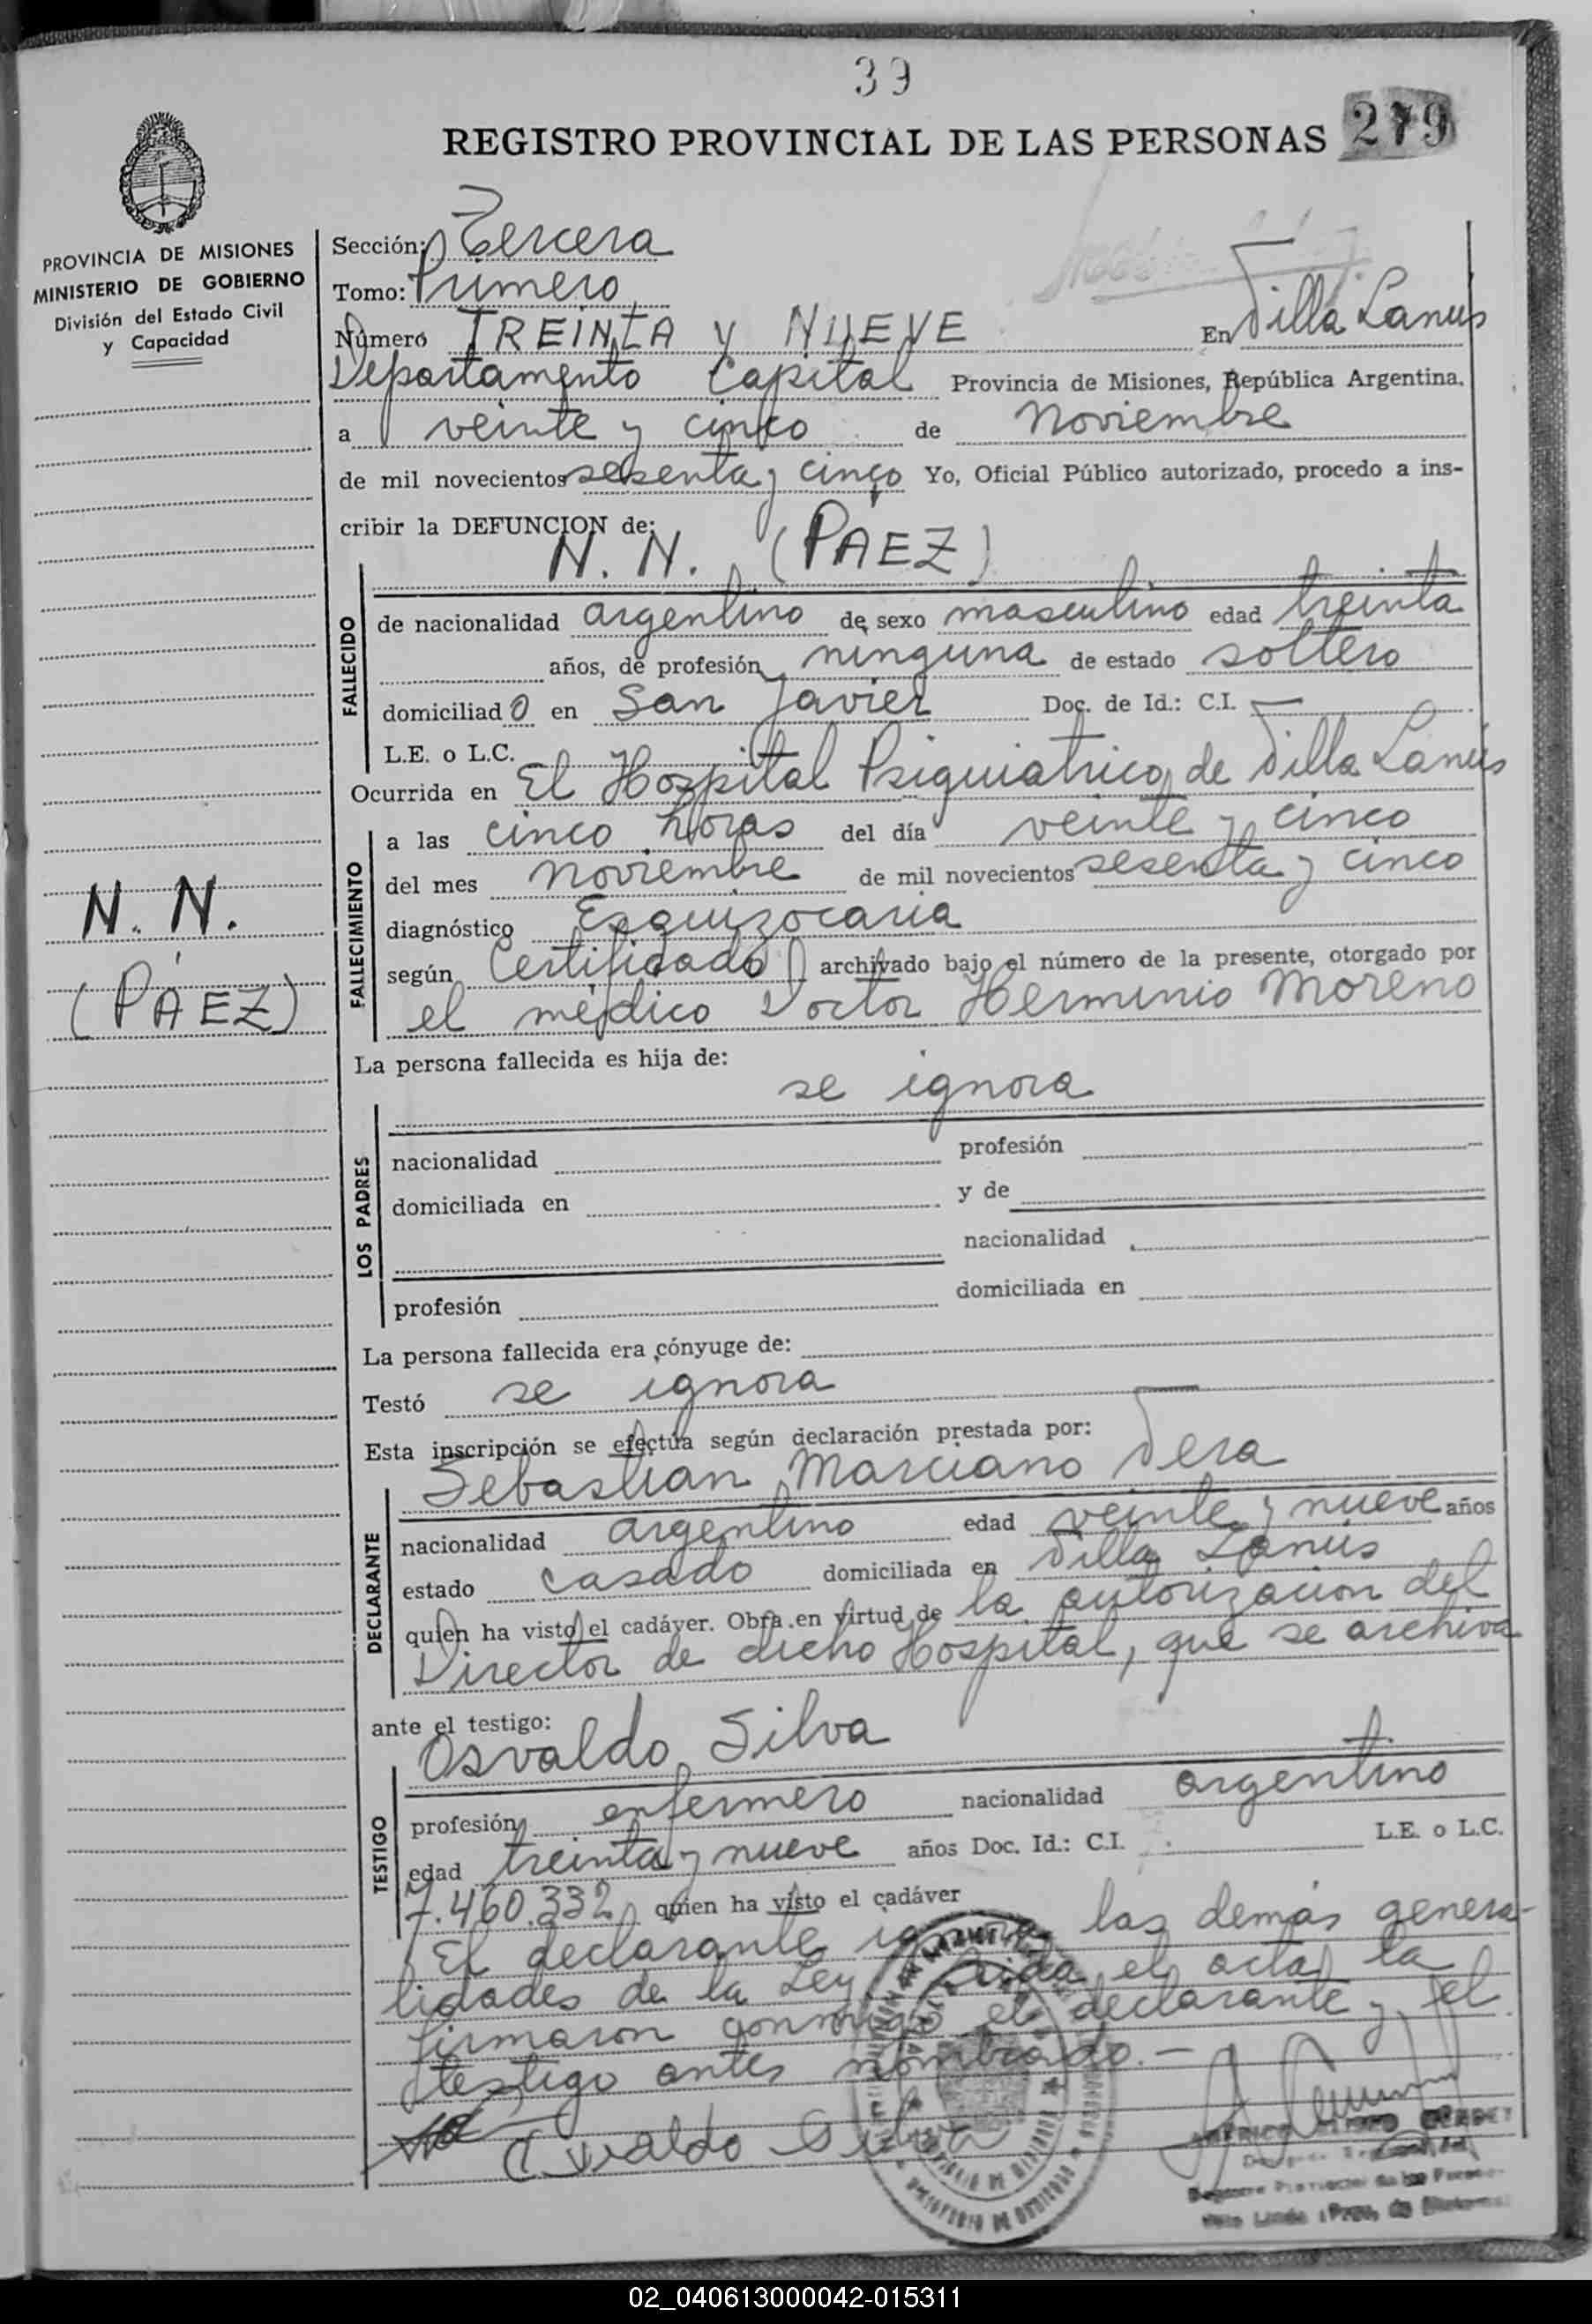 39
REGISTRO PROVINCIAL DE LAS PERSONAS 279
PROVINCIA DE MISIONES
MINISTERIO DE GOBIERNO
División del Estado Civil
y Capacidad
Sección: Tercera
Tomo: Primero
Número TREINTA y NUEVE En Villa Lanus
Departamento Capital Provincia de Misiones, República Argentina,
a veinte y cinco de Noviembre
de mil novecientos sesenta y cinco Yo, Oficial Público autorizado, procedo a ins-
cribir la DEFUNCION de:
N. N. (PAEZ)
FALLECIDO
de nacionalidad argentino de sexo masculino edad treinta
años, de profesión ninguna de estado soltero
domiciliado en San Javier Doc. de Id.: C.I. —
L.E. o L.C.
Ocurrida en El Hospital Psiquiatrico de Villa Lanús
FALLECIMIENTO
a las cinco horas del día veinte y cinco
del mes Noviembre de mil novecientos sesenta y cinco
diagnóstico Esquizocaria
según Certificado archivado bajo el número de la presente, otorgado por
el médico Doctor Herminio Moreno
N. N.
(PAEZ)
La persona fallecida es hija de:
se ignora
LOS PADRES
nacionalidad profesión
domiciliada en y de
nacionalidad
profesión domiciliada en
La persona fallecida era cónyuge de:
Testó se ignora
Esta inscripción se efectúa según declaración prestada por:
Sebastian Marciano Vera
DECLARANTE
nacionalidad argentino edad veinte y nueve años
estado casado domiciliada en Villa Lanús
quien ha visto el cadáver. Obra en virtud de la autorizacion del
Director de dicho Hospital, que se archiva
ante el testigo:
Osvaldo Silva
TESTIGO
profesión enfermero nacionalidad argentino
edad treinta y nueve años Doc. Id.: C.I. L.E. o L.C.
7.460.332 quien ha visto el cadáver
El declarante ignora las demás genera-
lidades de la Ley leida el acta, la
firmaron conmigo el declarante y el
testigo antes nombrado.—
Osvaldo Silva
02_040613000042-015311